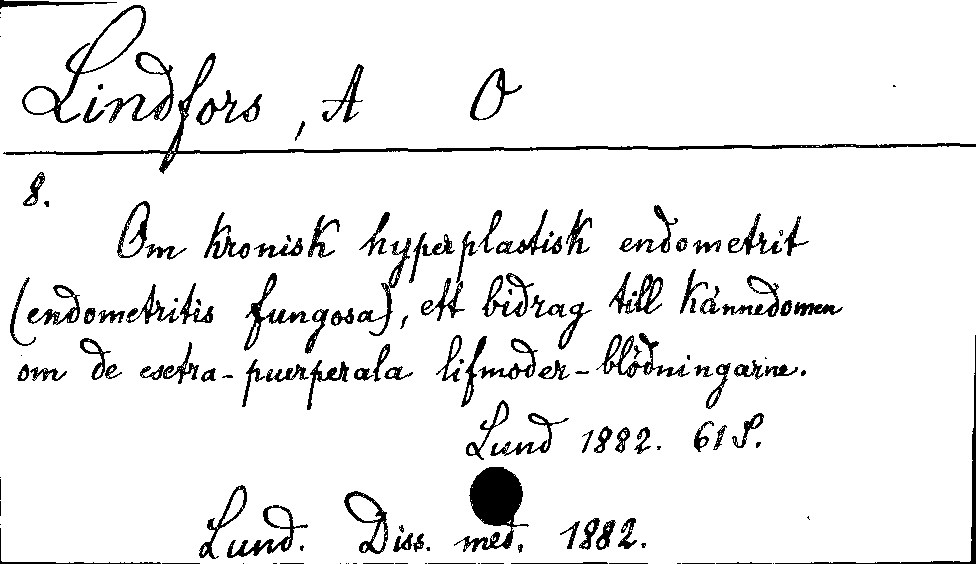 Lindfors, A O
8.
Om kronisk hyperplastisk endometrit
(endometritis fungosa), ett bidrag till kännedomen
om de esetra-puerperala lifmoder-blödningarne.
Lund 1882. 61 S.
Lund. Diss. med. 1882.